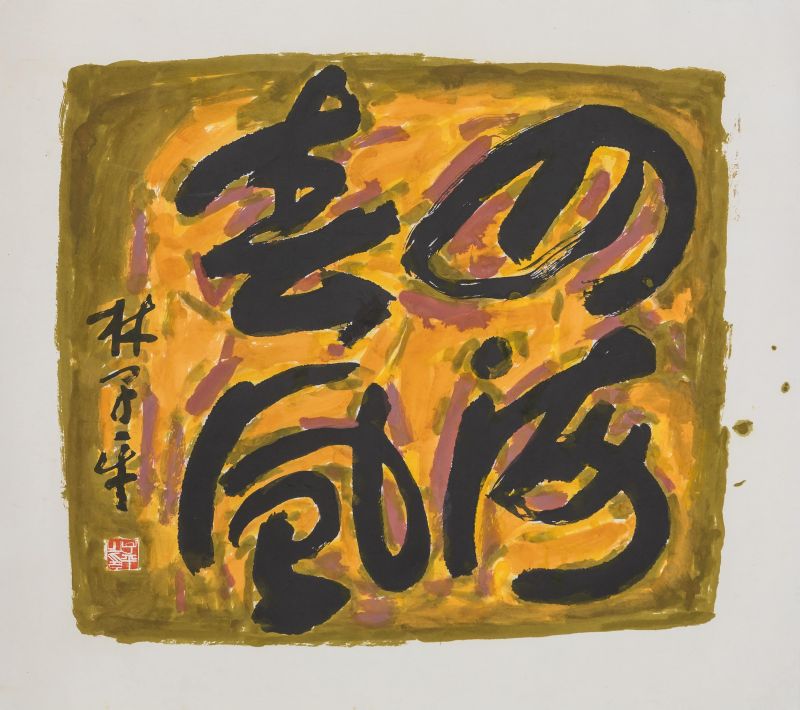 四海
春風
林子平